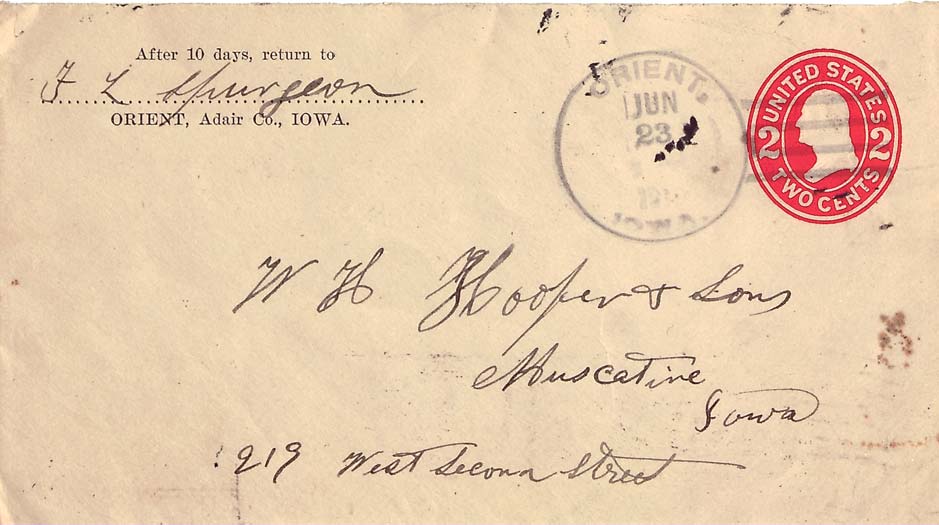 After 10 days, return to
F L Spurgeon
ORIENT, Adair Co., IOWA.
ORIENT,
JUN
23
IOWA.
UNITED STATES
2 2
TWO CENTS
W H Hooper & Sons
Muscatine
Iowa
219 West Second Street